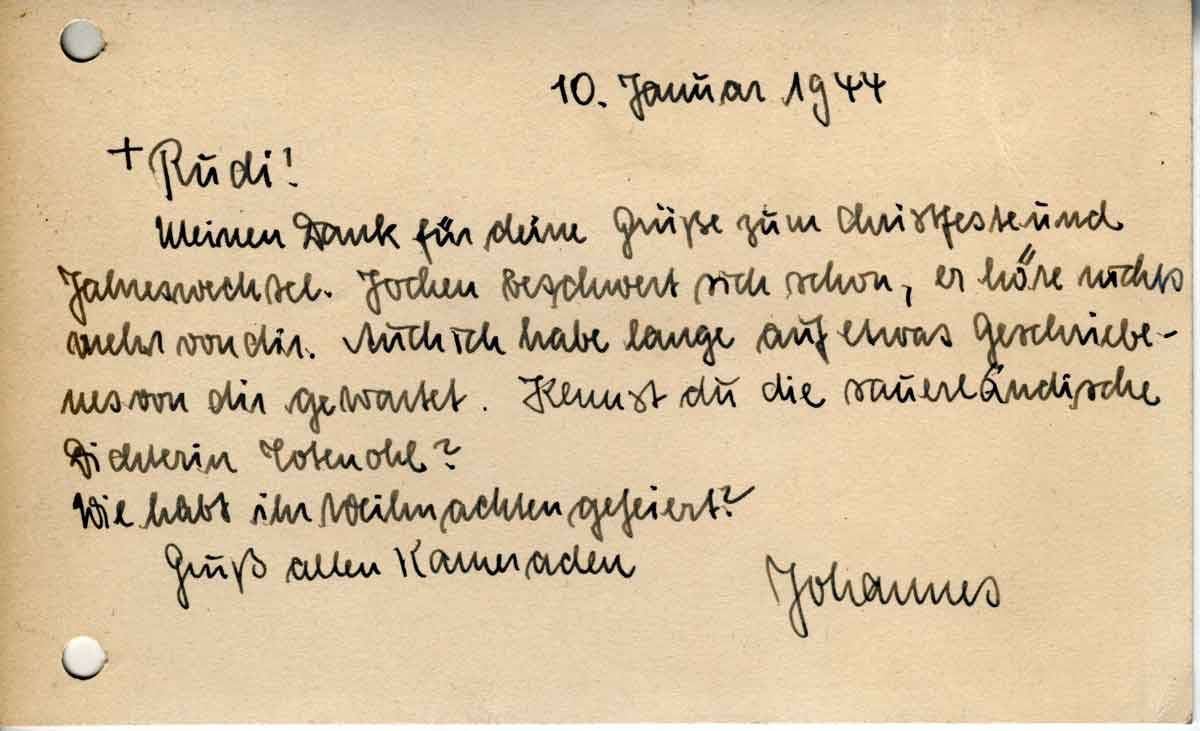 10. Januar 1944
+ Rudi!
Meinen Dank für deine Grüße zum Christfeste und
Jahreswechsel. Jochen beschwert sich schon, er höre nichts
mehr von dir. Auch ich habe lange auf etwas Geschriebe-
nes von dir gewartet. Kennst du die sauerländische
Dichterin Yotenohl?
Wie habt ihr Weihnachten gefeiert?
Gruß allen Kameraden
Johannes